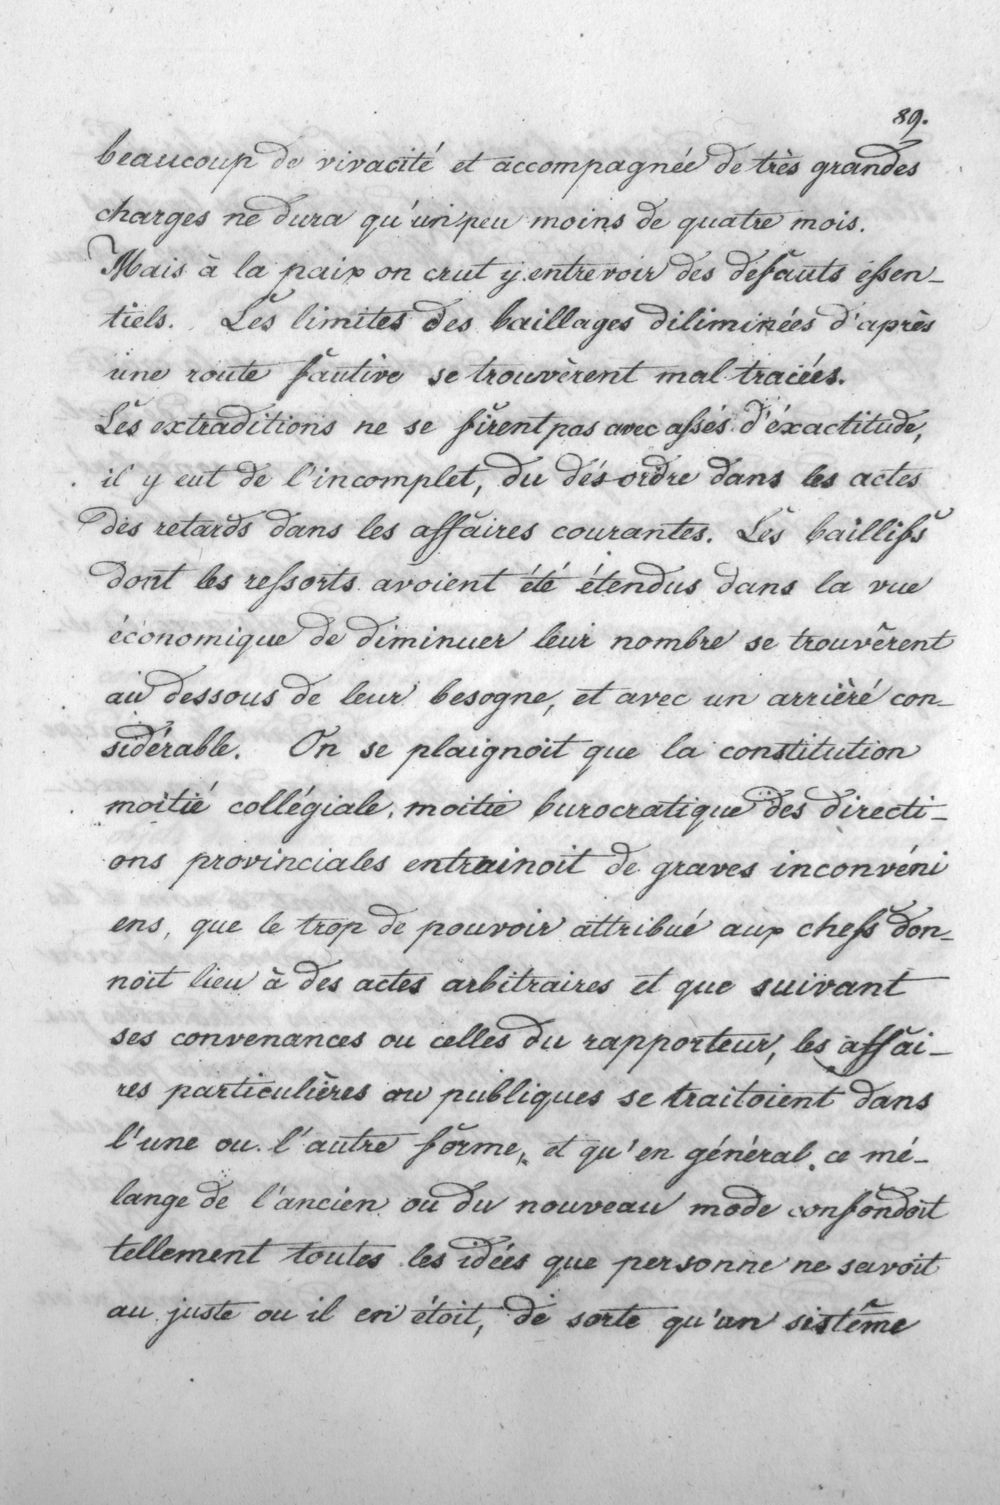 89.
beaucoup de vivacité et accompagnée de très grandes
charges ne dura qu'un peu moins de quatre mois.
Mais à la paix on crut y entrevoir des défauts essen-
tiels. Les limites des baillages diliminées d'après
une route fautive se trouvèrent mal tracées.
Les extraditions ne se firent pas avec assés d'éxactitude,
il y eut de l'incomplet, du désordre dans les actes
des retards dans les affaires courantes. Les baillifs
dont les ressorts avoient été étendus dans la vue
économique de diminuer leur nombre se trouvèrent
au dessous de leur besogne, et avec un arrièré con-
sidérable. On se plaignoit que la constitution
moitié collégiale, moitié burocratique des directi-
ons provinciales entrainoit de graves inconvéni
ens, que le trop de pouvoir attribué aux chefs don-
noit lieu à des actes arbitraires et que suivant
ses convenances ou celles du rapporteur, les affai-
res particulières ou publiques se traitoient dans
l'une ou l'autre forme, et qu'en général ce mé-
lange de l'ancien ou du nouveau mode confondoit
tellement toutes les idées que personne ne savoit
au juste ou il en étoit, de sorte qu'un sistême